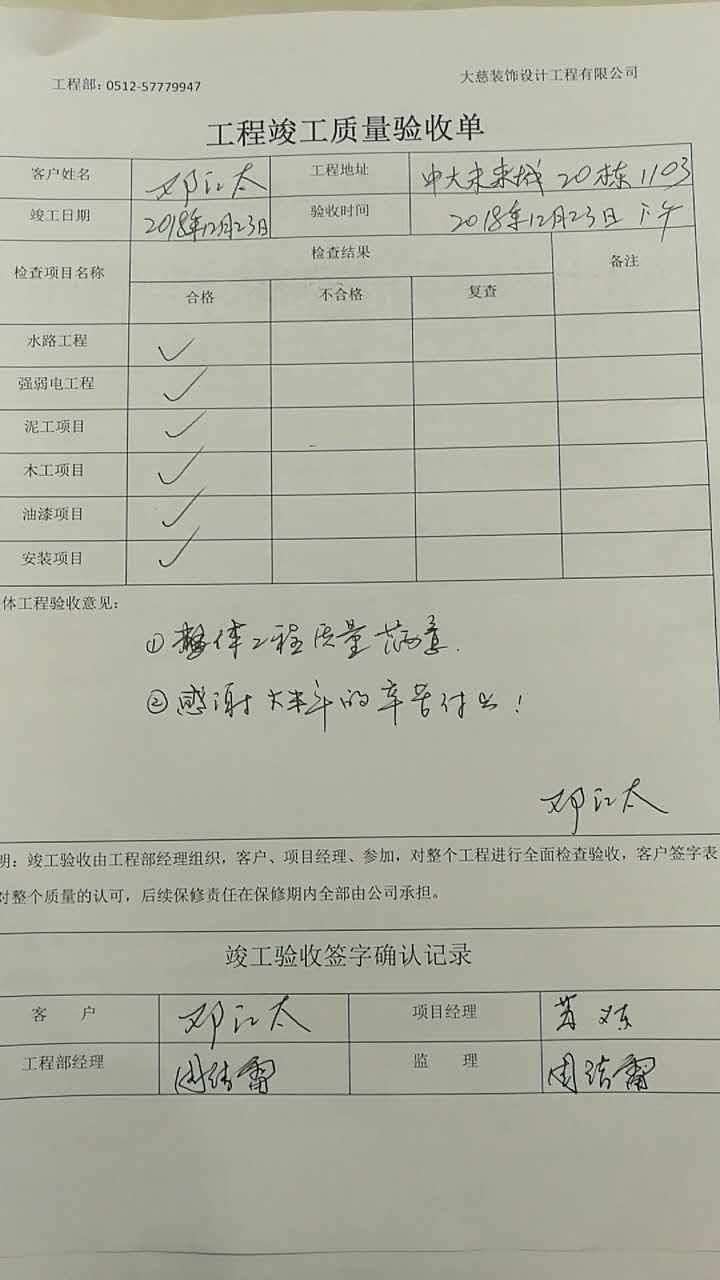 工程部：0512-57779947
大慈装饰设计工程有限公司
工程竣工质量验收单
客户姓名 邓江太 工程地址 中大未来城 20栋 1103
竣工日期 2018年12月23日 验收时间 2018年12月23日 下午
检查项目名称 检查结果 备注
合格 不合格 复查
水路工程 ✓
强弱电工程 ✓
泥工项目 ✓
木工项目 ✓
油漆项目 ✓
安装项目 ✓
体工程验收意见：
①整体工程质量满意.
②感谢大半年的辛苦付出！
邓江太
明：竣工验收由工程部经理组织，客户、项目经理、参加，对整个工程进行全面检查验收，客户签字表
对整个质量的认可，后续保修责任在保修期内全部由公司承担。
竣工验收签字确认记录
客 户 邓江太 项目经理
工程部经理 监 理